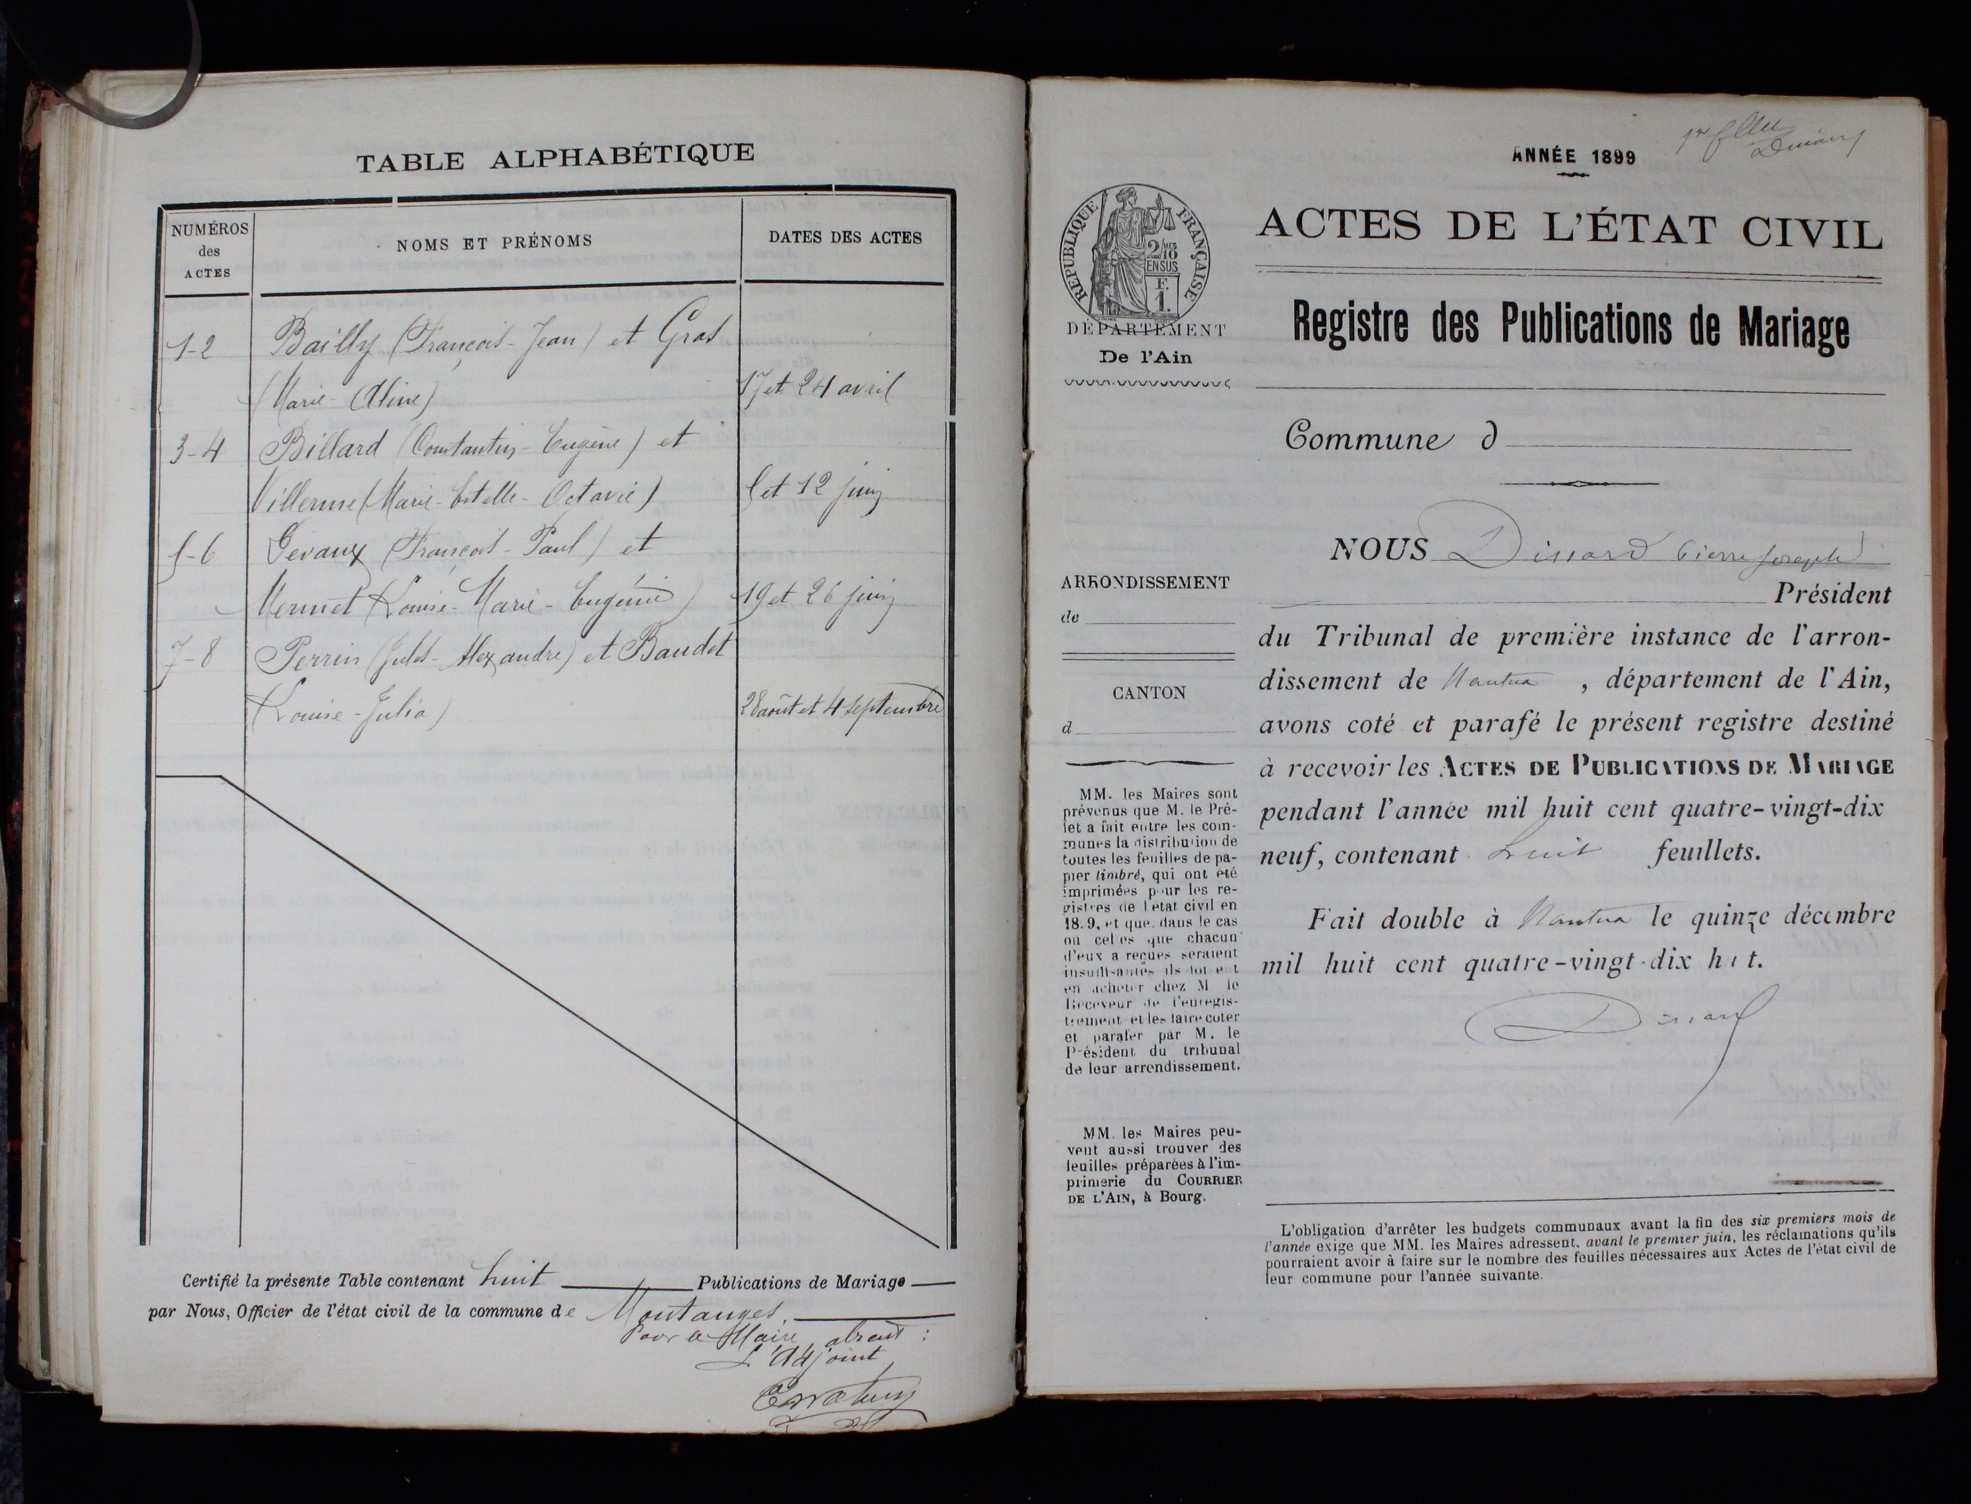 TABLE ALPHABÉTIQUE
NUMÉROS
des
ACTES
NOMS ET PRÉNOMS
DATES DES ACTES
1-2 Bailly (François-Jean) et Gros
(Marie-Aline) 17 et 24 avril
3-4 Billard (Constantin-Eugène) et
Villerme (Marie-Estelle-Octavie) 5 et 12 juin
5-6 Gevaux (François-Paul) et
Mermet (Louise-Marie-Eugénie) 19 et 26 juin
7-8 Perrin (Jules-Alexandre) et Baudet
(Louise-Julia) 28 août et 4 septembre
Certifié la présente Table contenant huit Publications de Mariage
par Nous, Officier de l'état civil de la commune de Montanges.
Pour le Maire absent :
L'Adjoint
ANNÉE 1899
RÉPUBLIQUE FRANÇAISE
2/10
EN SUS
F.
1.
DÉPARTEMENT
De l'Ain
ACTES DE L'ÉTAT CIVIL
Registre des Publications de Mariage
Commune d
NOUS Dinard Pierre Joseph
Président
du Tribunal de première instance de l'arron-
dissement de Nantua , département de l'Ain,
avons coté et parafé le présent registre destiné
à recevoir les ACTES DE PUBLICATIONS DE MARIAGE
pendant l'année mil huit cent quatre-vingt-dix
neuf, contenant huit feuillets.
Fait double à Nantua le quinze décembre
mil huit cent quatre-vingt-dix huit.
Dinard
ARRONDISSEMENT
de
CANTON
d
MM. les Maires sont
prévenus que M. le Pré-
fet a fait entre les com-
munes la distribution de
toutes les feuilles de pa-
pier timbré, qui ont été
imprimées pour les re-
gistres de l'état civil en
18.9, et que, dans le cas
où celles que chacun
d'eux a reçues seraient
insuffisantes ils doivent
en acheter chez M. le
Receveur de l'enregis-
trement et les faire coter
et parafer par M. le
Président du tribunal
de leur arrondissement.
MM. les Maires peu-
vent aussi trouver des
feuilles préparées à l'im-
primerie du COURRIER
DE L'AIN, à Bourg.
L'obligation d'arrêter les budgets communaux avant la fin des six premiers mois de
l'année exige que MM. les Maires adressent, avant le premier juin, les réclamations qu'ils
pourraient avoir à faire sur le nombre des feuilles nécessaires aux Actes de l'état civil de
leur commune pour l'année suivante.